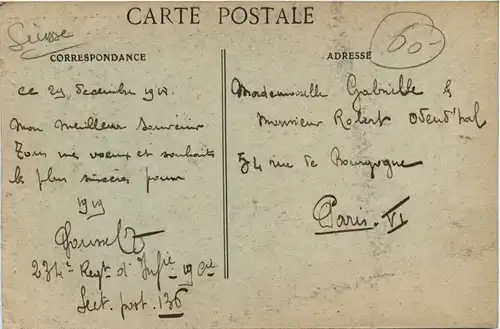 CARTE POSTALE
Suisse
60-
CORRESPONDANCE
ADRESSE
ce 29 decembre 1918.
Mon meilleur souvenir
Tous mes voeux et souhaits
les plus sincères pour
1919
234e Regt d'Infie 19 Cie
Sect. post. 136
Mademoiselle Gabrielle &
Monsieur Robert Odend'hal
54 rue de Bourgogne
Paris. VI